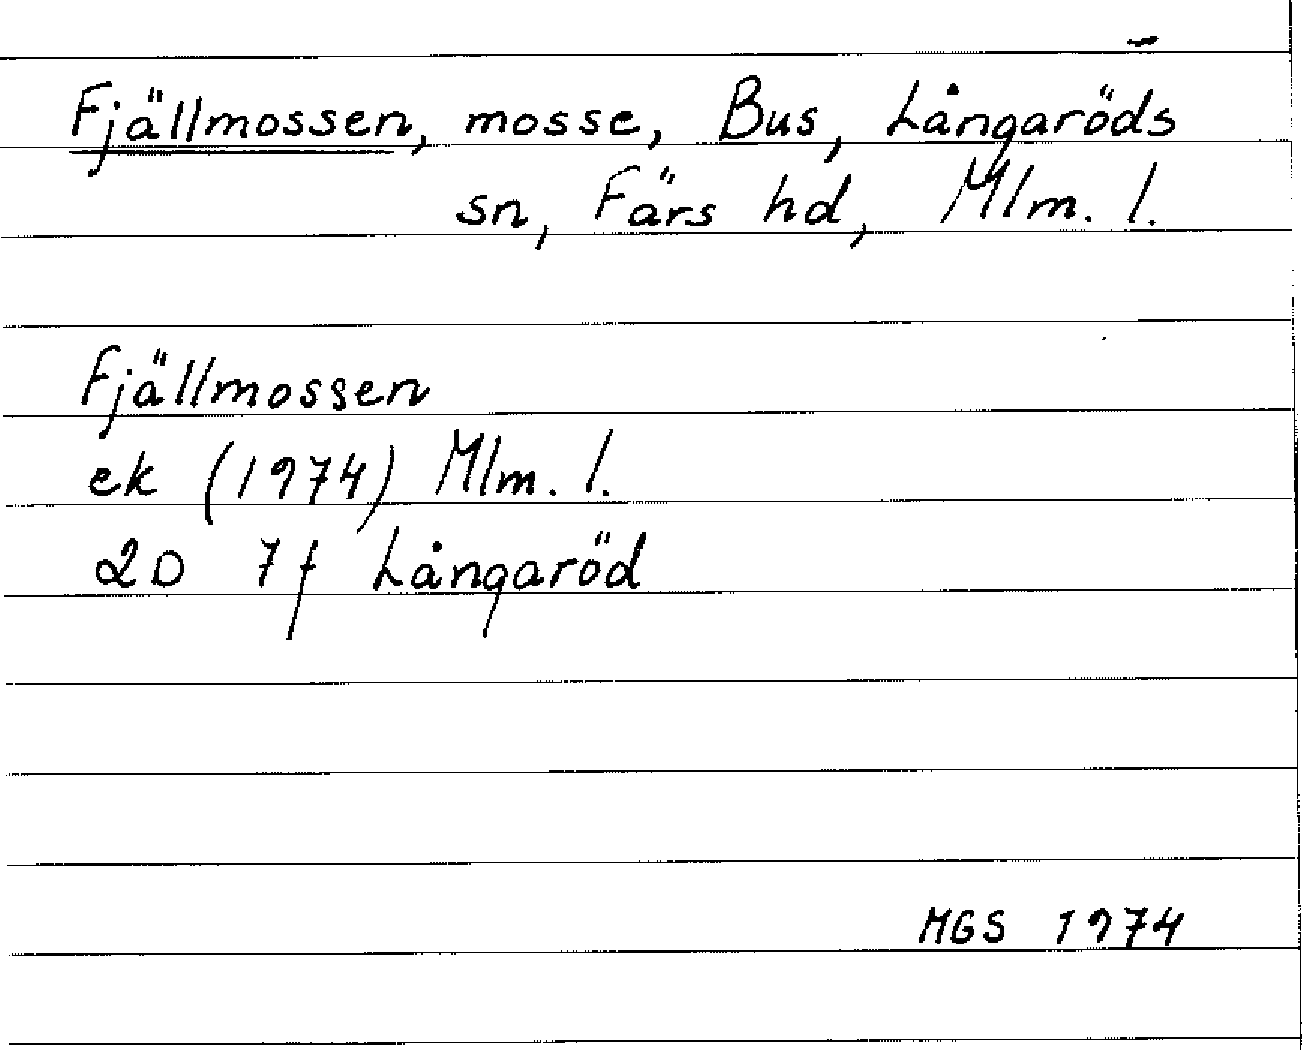 Fjällmossen, mosse, Bus, Långaröds
sn, Färs hd, Mlm. l.
Fjällmossen
ek (1974) Mlm. l.
2D 7f Långaröd
MGS 1974